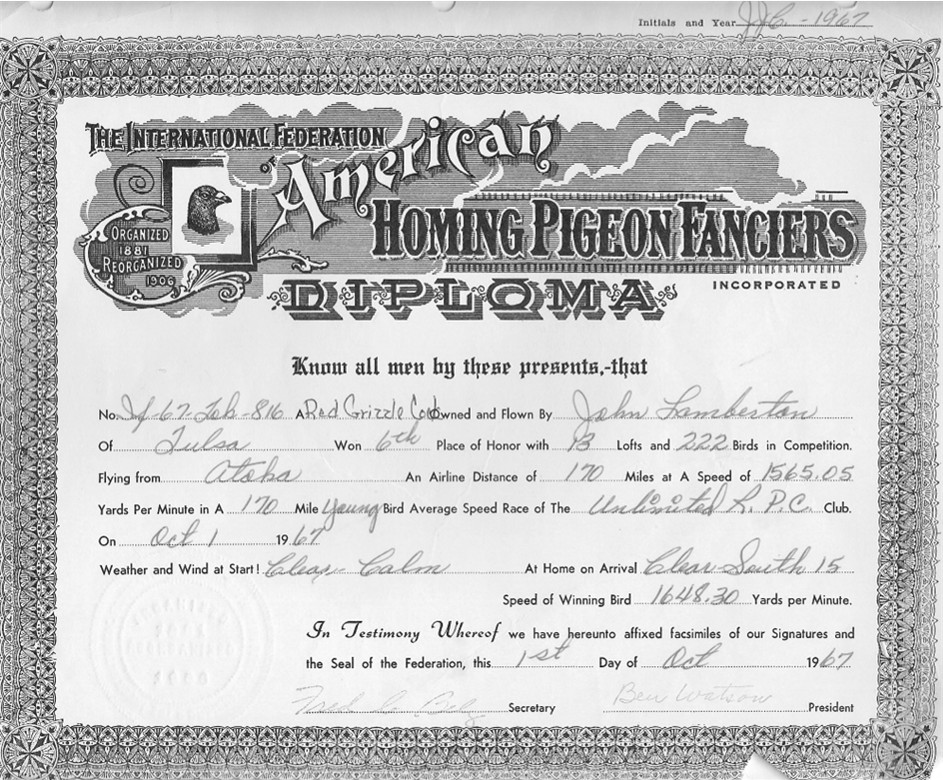 Initials and Year JJC. - 1967
THE INTERNATIONAL FEDERATION
OF American
HOMING PIGEON FANCIERS
ORGANIZED
1881
REORGANIZED
1906
INCORPORATED
DIPLOMA
Know all men by these presents,-that
No. If-67-Tob-816 A Red Grizzle Cock Owned and Flown By John Lamberton
Of Tulsa Won 6th Place of Honor with 13 Lofts and 222 Birds in Competition.
Flying from Atoka An Airline Distance of 170 Miles at A Speed of 1565.05
Yards Per Minute in A 170 Mile Young Bird Average Speed Race of The Unlimited R.P.C. Club.
On Oct 1 1967
Weather and Wind at Start! Clear - Calm At Home on Arrival Clear South 15
Speed of Winning Bird 1648.30 Yards per Minute.
In Testimony Whereof we have hereunto affixed facsimiles of our Signatures and
the Seal of the Federation, this 1st Day of Oct 1967
Secretary Ben Watson President